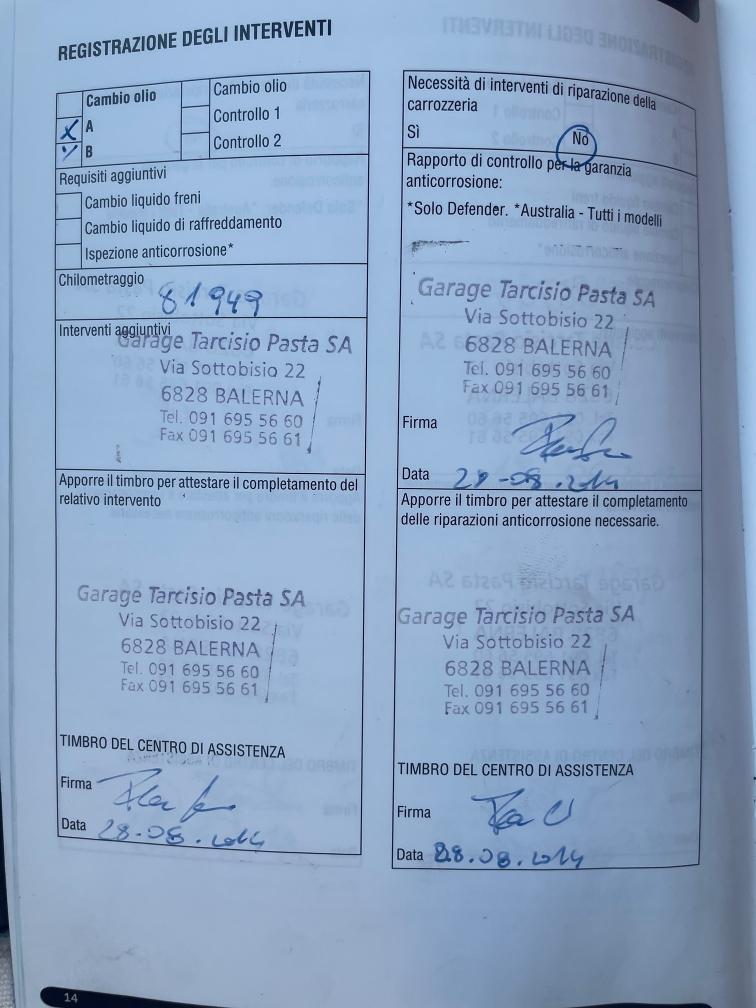 REGISTRAZIONE DEGLI INTERVENTI
Cambio olio
A
B
Cambio olio
Controllo 1
Controllo 2
Requisiti aggiuntivi
Cambio liquido freni
Cambio liquido di raffreddamento
Ispezione anticorrosione*
Chilometraggio
81949
Interventi aggiuntivi
Garage Tarcisio Pasta SA
Via Sottobisio 22
6828 BALERNA
Tel. 091 695 56 60
Fax 091 695 56 61
Apporre il timbro per attestare il completamento del
relativo intervento
Garage Tarcisio Pasta SA
Via Sottobisio 22
6828 BALERNA
Tel. 091 695 56 60
Fax 091 695 56 61
TIMBRO DEL CENTRO DI ASSISTENZA
Firma
Data 28.08.2014
Necessità di interventi di riparazione della
carrozzeria
Sì No
Rapporto di controllo per la garanzia
anticorrosione:
*Solo Defender. *Australia - Tutti i modelli
Garage Tarcisio Pasta SA
Via Sottobisio 22
6828 BALERNA
Tel. 091 695 56 60
Fax 091 695 56 61
Firma
Data 28-08.2014
Apporre il timbro per attestare il completamento
delle riparazioni anticorrosione necessarie.
Garage Tarcisio Pasta SA
Via Sottobisio 22
6828 BALERNA
Tel. 091 695 56 60
Fax 091 695 56 61
TIMBRO DEL CENTRO DI ASSISTENZA
Firma
Data 28.08.2014
14